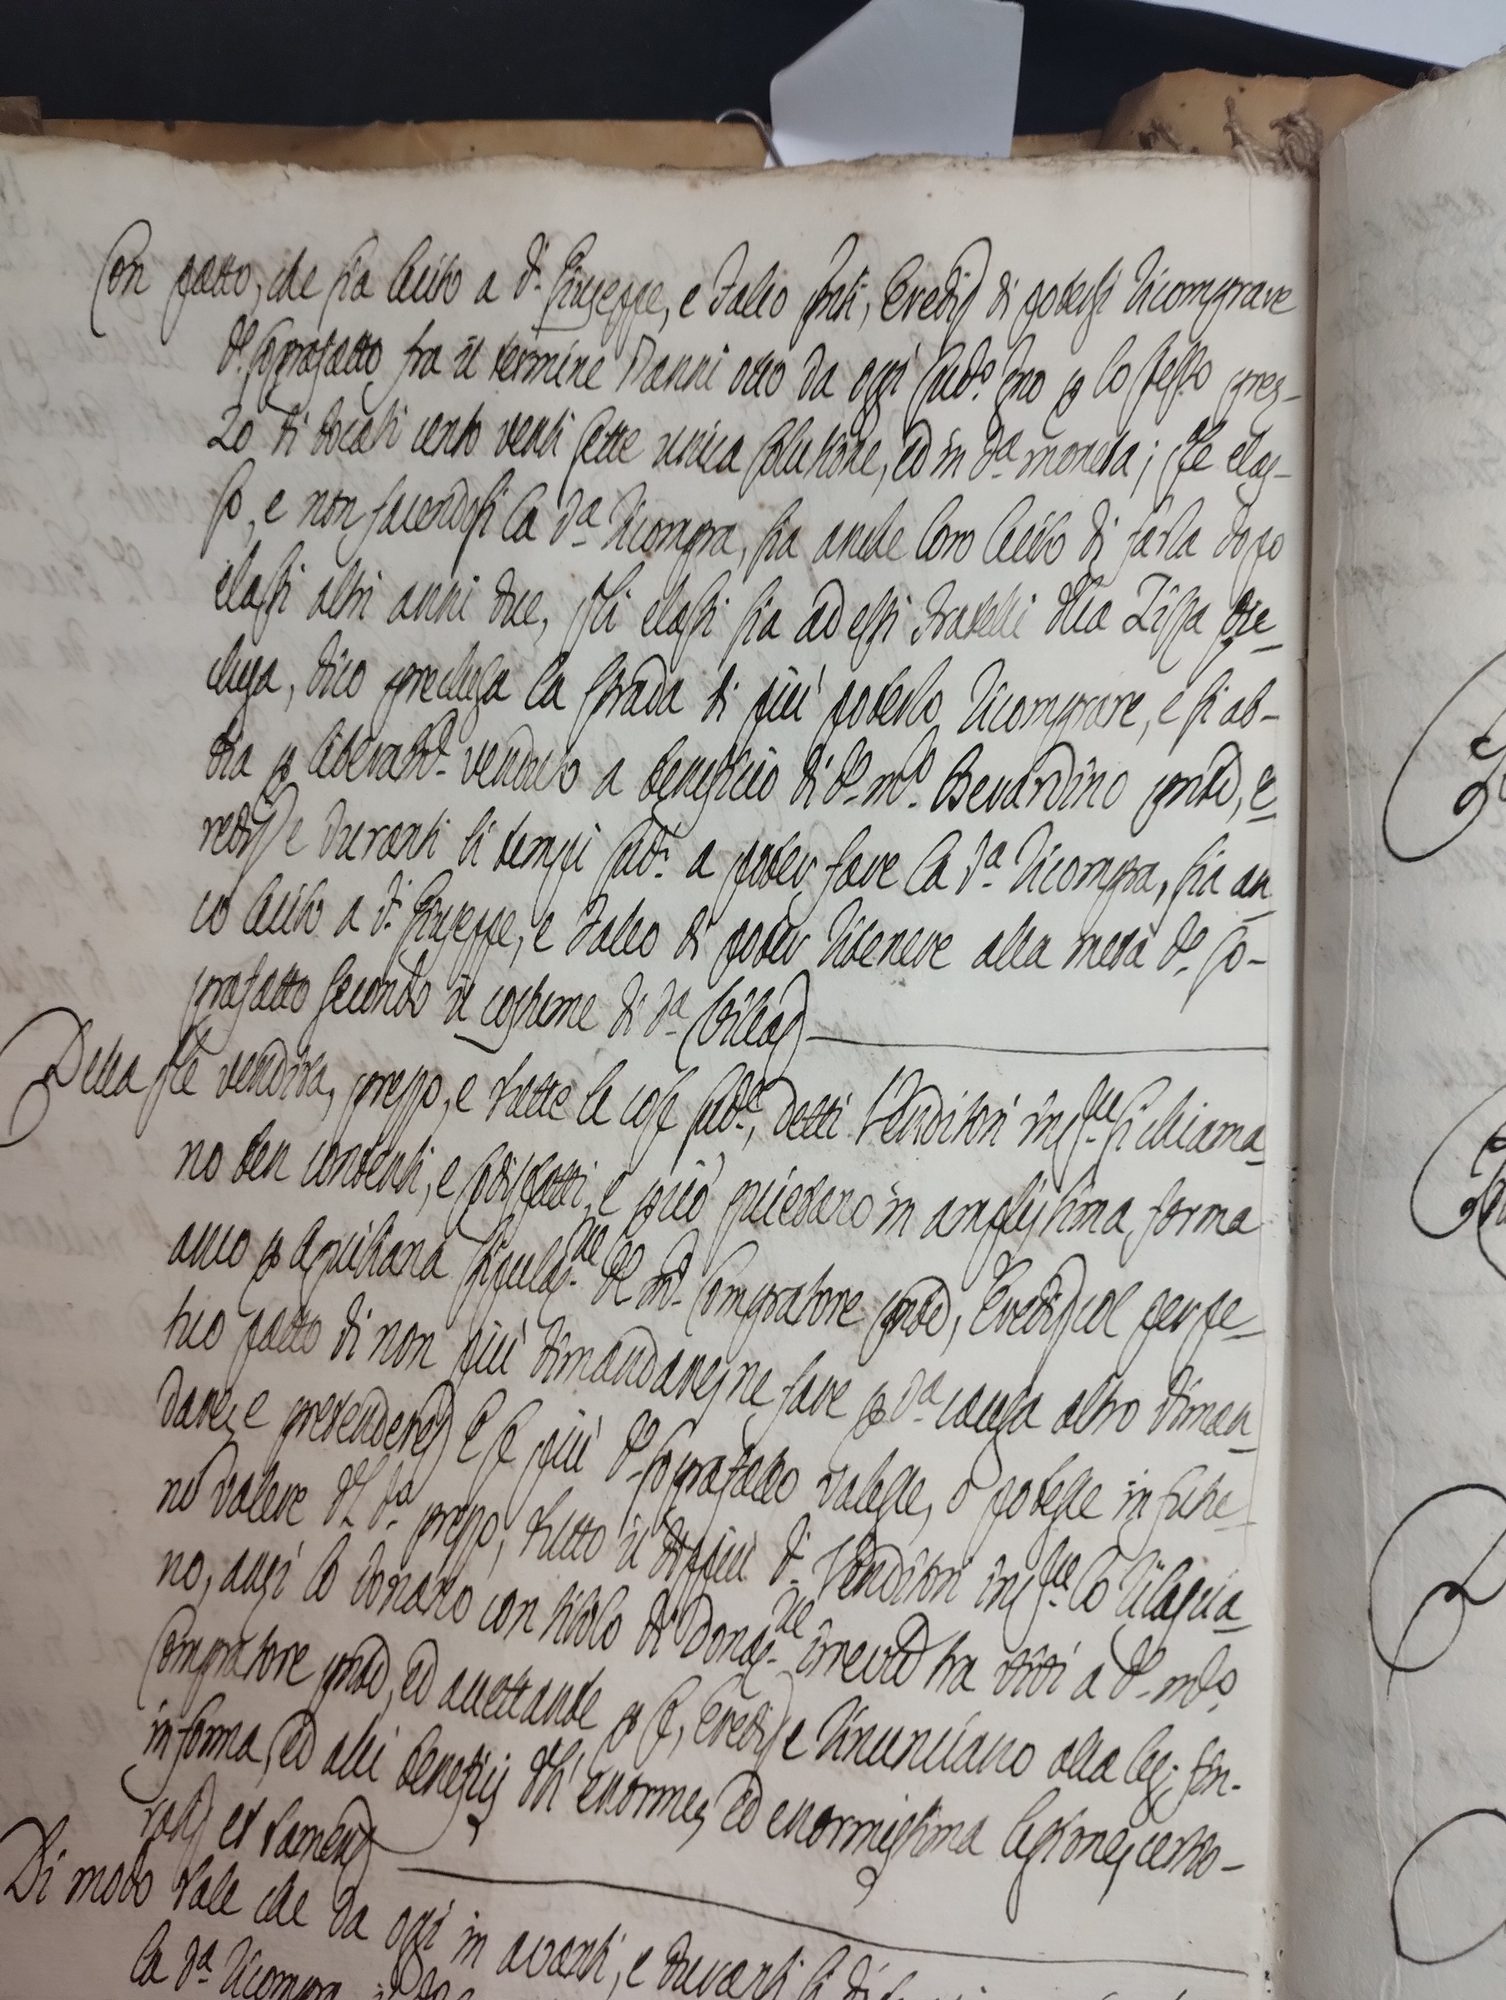 Con patto, che sia lecito a d.i Giuseppe, e Falco prnti, Eredi di potersi ricomprare
d.o soprafatto fra il termine d'anni otto da oggi sud.o inno p lo stesso prez-
zo di docati cento venti sette unica solutione, ed in d.a moneta; qle elas-
so, e non facendosi la d.a ricompra, sia anche loro lecito di farla dopo
elassi altri anni due, qli elassi sia ad essi Fratelli dlla Zissa pre-
clusa, dico preclusa la strada di più poterlo ricomprare, e si ab-
bia p liberam.te venduto a beneficio di d.o m.ro Berardino pnte, e
redi, e duranti li tempi sud.i a poter fare la d.a ricompra, sia an
co lecito a d.i Giuseppe, e Falco di poter ritenere alla metà d.o so-
prafatto secondo il costume di d.a Città
Della qle vendita, prezzo, e tutte le cose sud.e, detti Venditori in s. si chiama
no ben contenti, e sodisfatti, e p ciò quietano in amplissima forma
anco p aquiliana stipulaz.ne d.o m.ro Compratore pnte, Eredi col perpe-
tuo patto di non più dimandare, ne fare p d.a causa altro diman
dare, e pretendere E se più d.o soprafatto valesse, o potesse in futu-
ro valere dl d.o prezzo, tutto il dippiù d.i Venditori in s. lo rilascia
no, anzi lo donano con titolo di donaz.ne irrev.le tra vivi a d.o m.ro
Compratore pnte, ed accettante p se, Eredi, e rinunciano alla legge, son-
in forma, ed alli beneficij dll' enorme, ed enormissima lesione, certio-
rati et tamen
Di modo tale che da oggi in avanti, e duranti li
la d.a ricompra